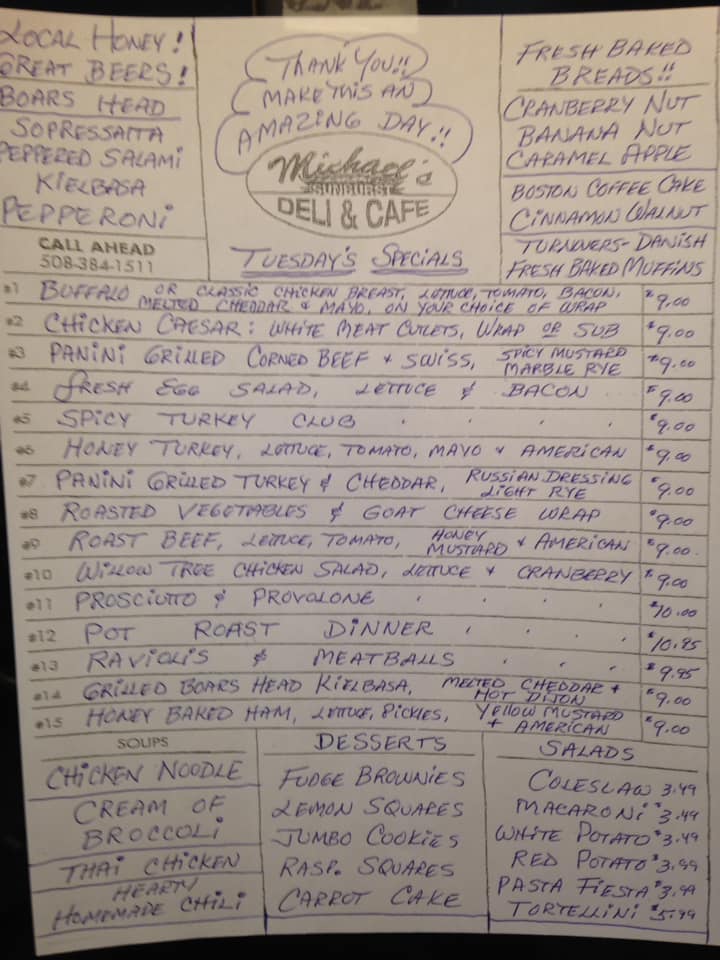 LOCAL HONEY!
GREAT BEERS!
BOARS HEAD
SOPRESSATTA
PEPPERED SALAMI
KIELBASA
PEPPERONI
CALL AHEAD
508-384-1511
THANK YOU!!
MAKE THIS AN
AMAZING DAY!!
Michael's
SUNBURST
DELI & CAFE
TUESDAY'S SPECIALS
FRESH BAKED
BREADS!!
CRANBERRY NUT
BANANA NUT
CARAMEL APPLE
BOSTON COFFEE CAKE
CINNAMON WALNUT
TURNOVERS - DANISH
FRESH BAKED MUFFINS
#1 BUFFALO OR CLASSIC CHICKEN BREAST, LETTUCE, TOMATO, BACON,
MELTED CHEDDAR & MAYO, ON YOUR CHOICE OF WRAP $9.00
#2 CHICKEN CAESAR: WHITE MEAT CUTLETS, WRAP OR SUB $9.00
#3 PANINI GRILLED CORNED BEEF & SWISS, SPICY MUSTARD
MARBLE RYE $9.00
#4 FRESH EGG SALAD, LETTUCE & BACON $9.00
#5 SPICY TURKEY CLUB $9.00
#6 HONEY TURKEY, LETTUCE, TOMATO, MAYO & AMERICAN $9.00
#7 PANINI GRILLED TURKEY & CHEDDAR, RUSSIAN DRESSING
LIGHT RYE $9.00
#8 ROASTED VEGETABLES & GOAT CHEESE WRAP $9.00
#9 ROAST BEEF, LETTUCE, TOMATO, HONEY
MUSTARD & AMERICAN $9.00
#10 WILLOW TREE CHICKEN SALAD, LETTUCE & CRANBERRY $9.00
#11 PROSCIUTTO & PROVOLONE $10.00
#12 POT ROAST DINNER $10.95
#13 RAVIOLI'S & MEATBALLS $9.95
#14 GRILLED BOARS HEAD KIELBASA, MELTED CHEDDAR &
HOT DIJON $9.00
#15 HONEY BAKED HAM, LETTUCE, PICKLES, YELLOW MUSTARD
& AMERICAN $9.00
SOUPS
CHICKEN NOODLE
CREAM OF
BROCCOLI
THAI CHICKEN
HEARTY
HOMEMADE CHILI
DESSERTS
FUDGE BROWNIES
LEMON SQUARES
JUMBO COOKIES
RASP. SQUARES
CARROT CAKE
SALADS
COLESLAW 3.49
MACARONI $3.49
WHITE POTATO $3.49
RED POTATO $3.99
PASTA FIESTA $3.99
TORTELLINI $5.99